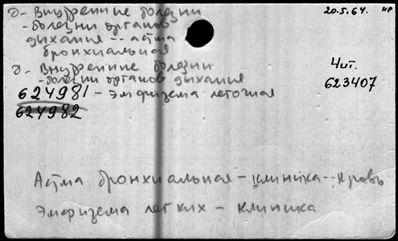 д- Внутренние болезни
20.5.64. нр
-болезни органов
дыхания -- астма
бронхиальная
д- Внутренние болезни
-болезни органов дыхания
Чит.
623407
624981 - эмфизема легочная
624982
Астма бронхиальная - клиника -- кровь
Эмфизема легких - клиника